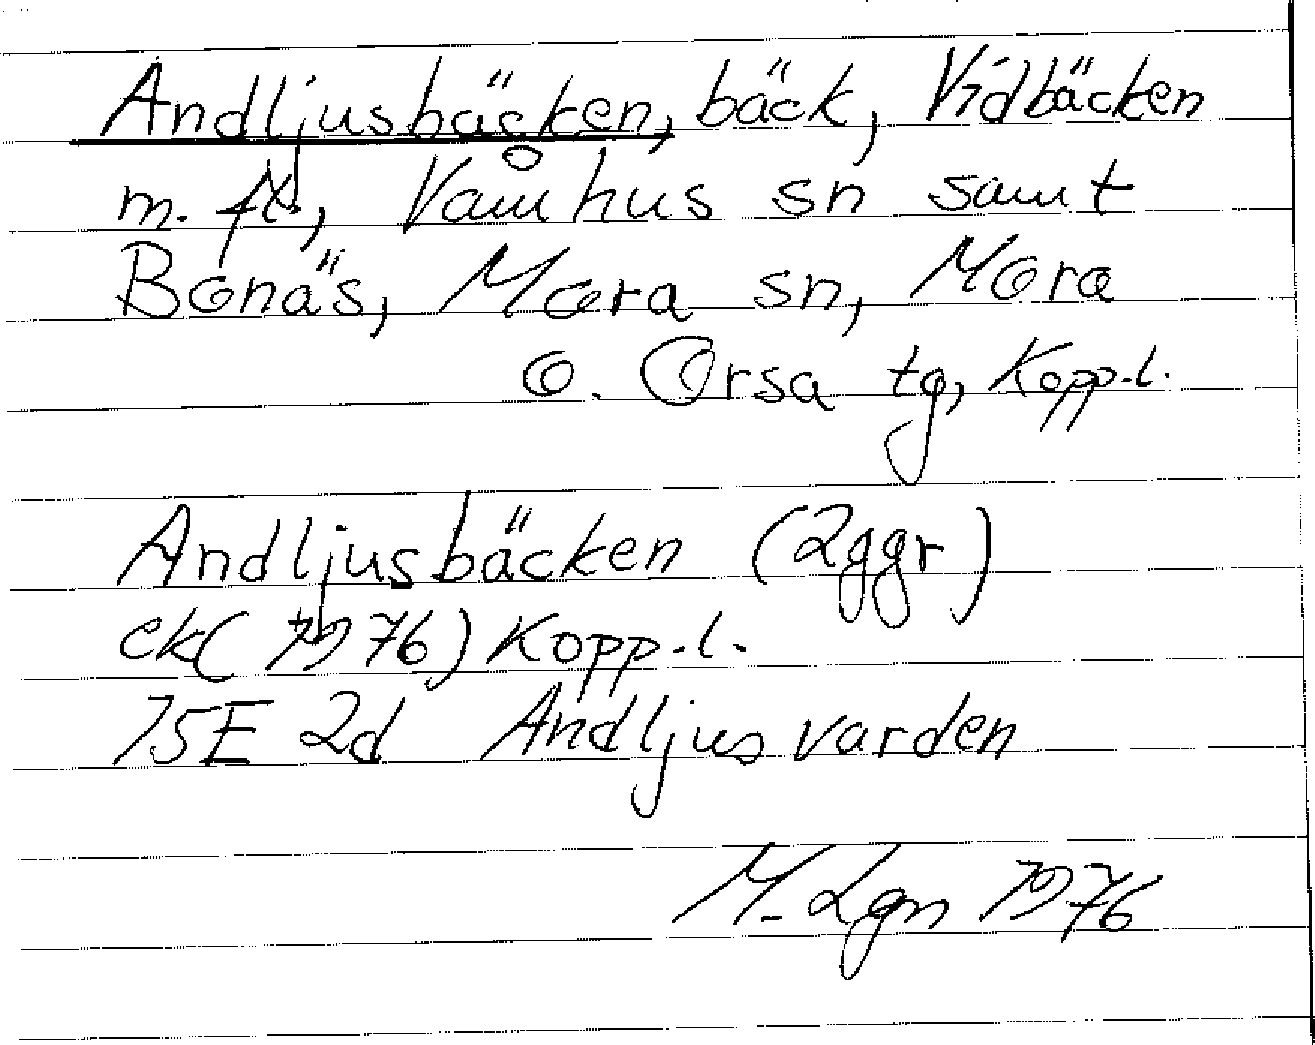 Andljusbäcken, bäck, Vidbäcken
m. fl., Våmhus sn samt
Bonäs, Mora sn, Mora
o. Orsa tg, Kopp.l.
Andljusbäcken (2ggr)
ek(1976) Kopp.l.
15E 2d Andljusvarden
M. Lgn 1976